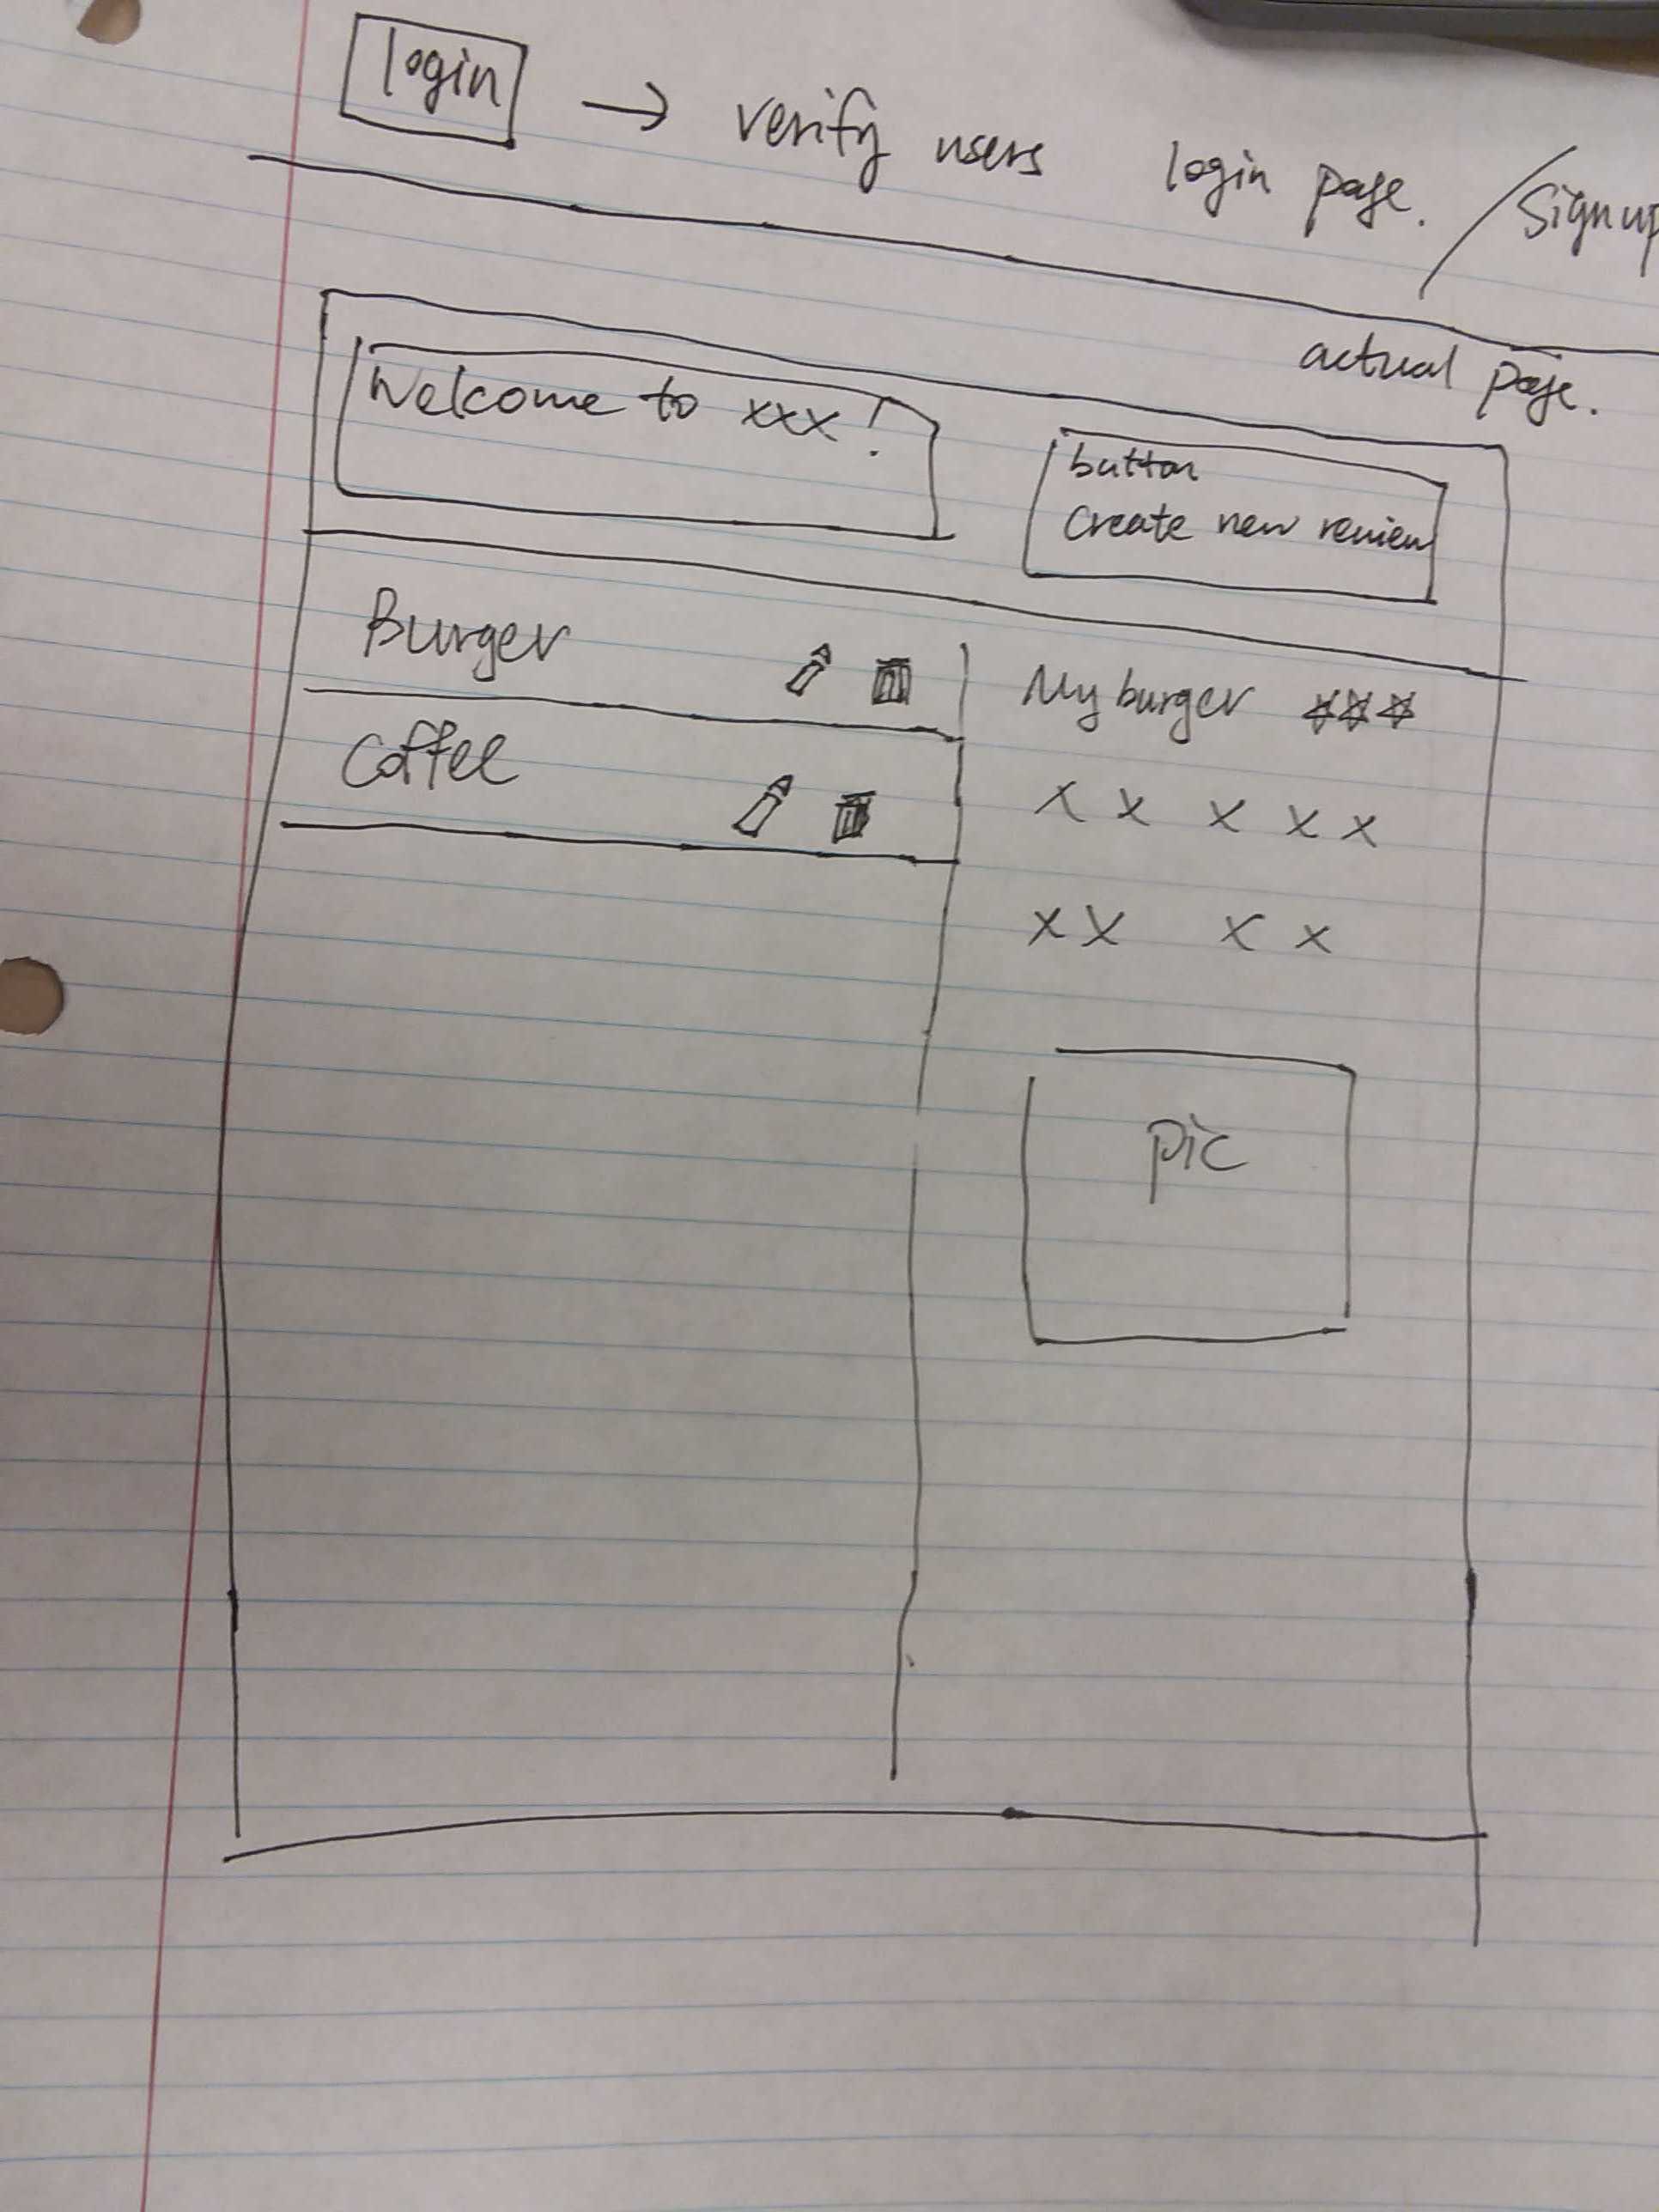 login → verify users login page. / Sign up
actual page.
Welcome to xxx!
button
Create new review
Burger
My burger ☆☆☆
Coffee
x x x x x
x x x x
pic